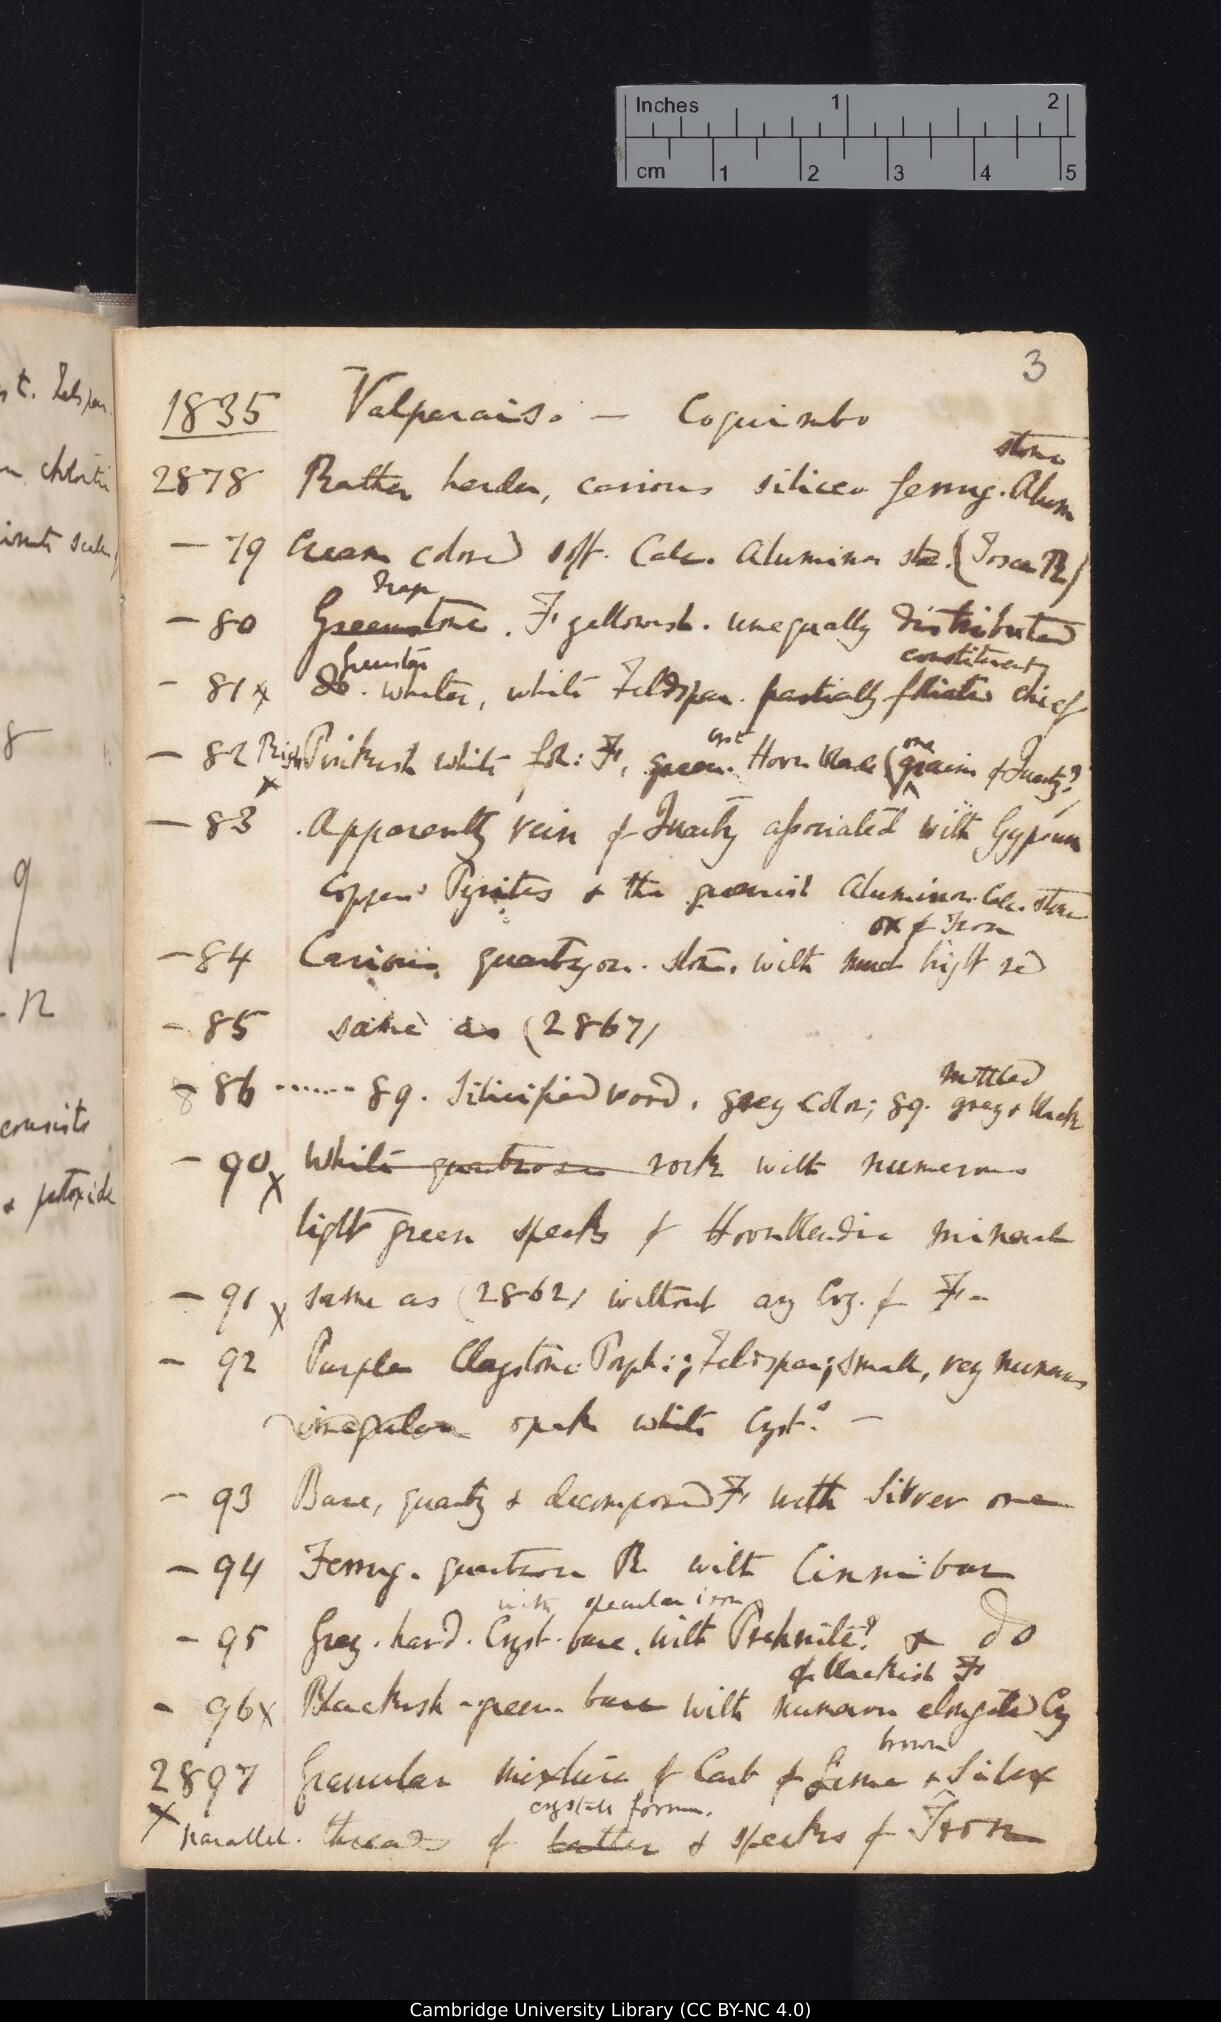 Inches 1 2
cm 1 2 3 4 5
3
1835 Valparaiso — Coquimbo
stone
2878 Rather harder, carious siliceo ferrug. Alum
— 79 Cream colored soft. Calc. Aluminous sto. (Tosca R)
Trap
— 80 Greenstone. F yellowish. unequally distributed
Greensto constituent
— 81 x do. whiter, white Feldspar. partially foliated chief
cryst one
— 82 Pinkish white fol: F, green. Hornblende (grain of Quartz?)
x
— 83 Apparently vein of Quartz associated with Gypsum
Copper Pyrites & the greenish Aluminous. Calc. stone
ox of Iron
— 84 Carious quartzose. stone. with much bright red
— 85 same as (2867)
mottled
— 86 ...... 89. Silicified wood, grey color; 89. grey & black
— 90 x White quartzose rock with numerous
light green specks of Hornblendic mineral
— 91 x same as (2862) without any Cry. of F —
— 92 Purple Claystone Porph:; Feldspar; small, very numerous
irregular opake white Cryst. —
— 93 Base, quartz & decomposed F with Silver ore
— 94 Ferrug. quartzose R. with Cinnibar
with specular iron
— 95 Grey. hard. Cryst. base, with Prehnite? & do
of blackish F
— 96 x Blackish-green base with numerous elongated Cry
brown
2897 Granular mixture of Carb of Lime & Silex
crystall form.
x parallel. threads of latter & specks of Iron
st. Felspar.
chloritic
8
9
R
consists
& protoxide
Cambridge University Library (CC BY-NC 4.0)